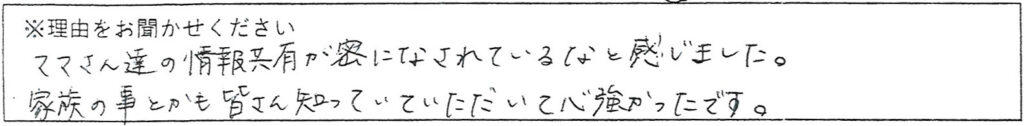 ※理由をお聞かせください
ママさん達の情報共有が密になされているなと感じました。
家族の事とかも皆さん知っていていただいて心強かったです。